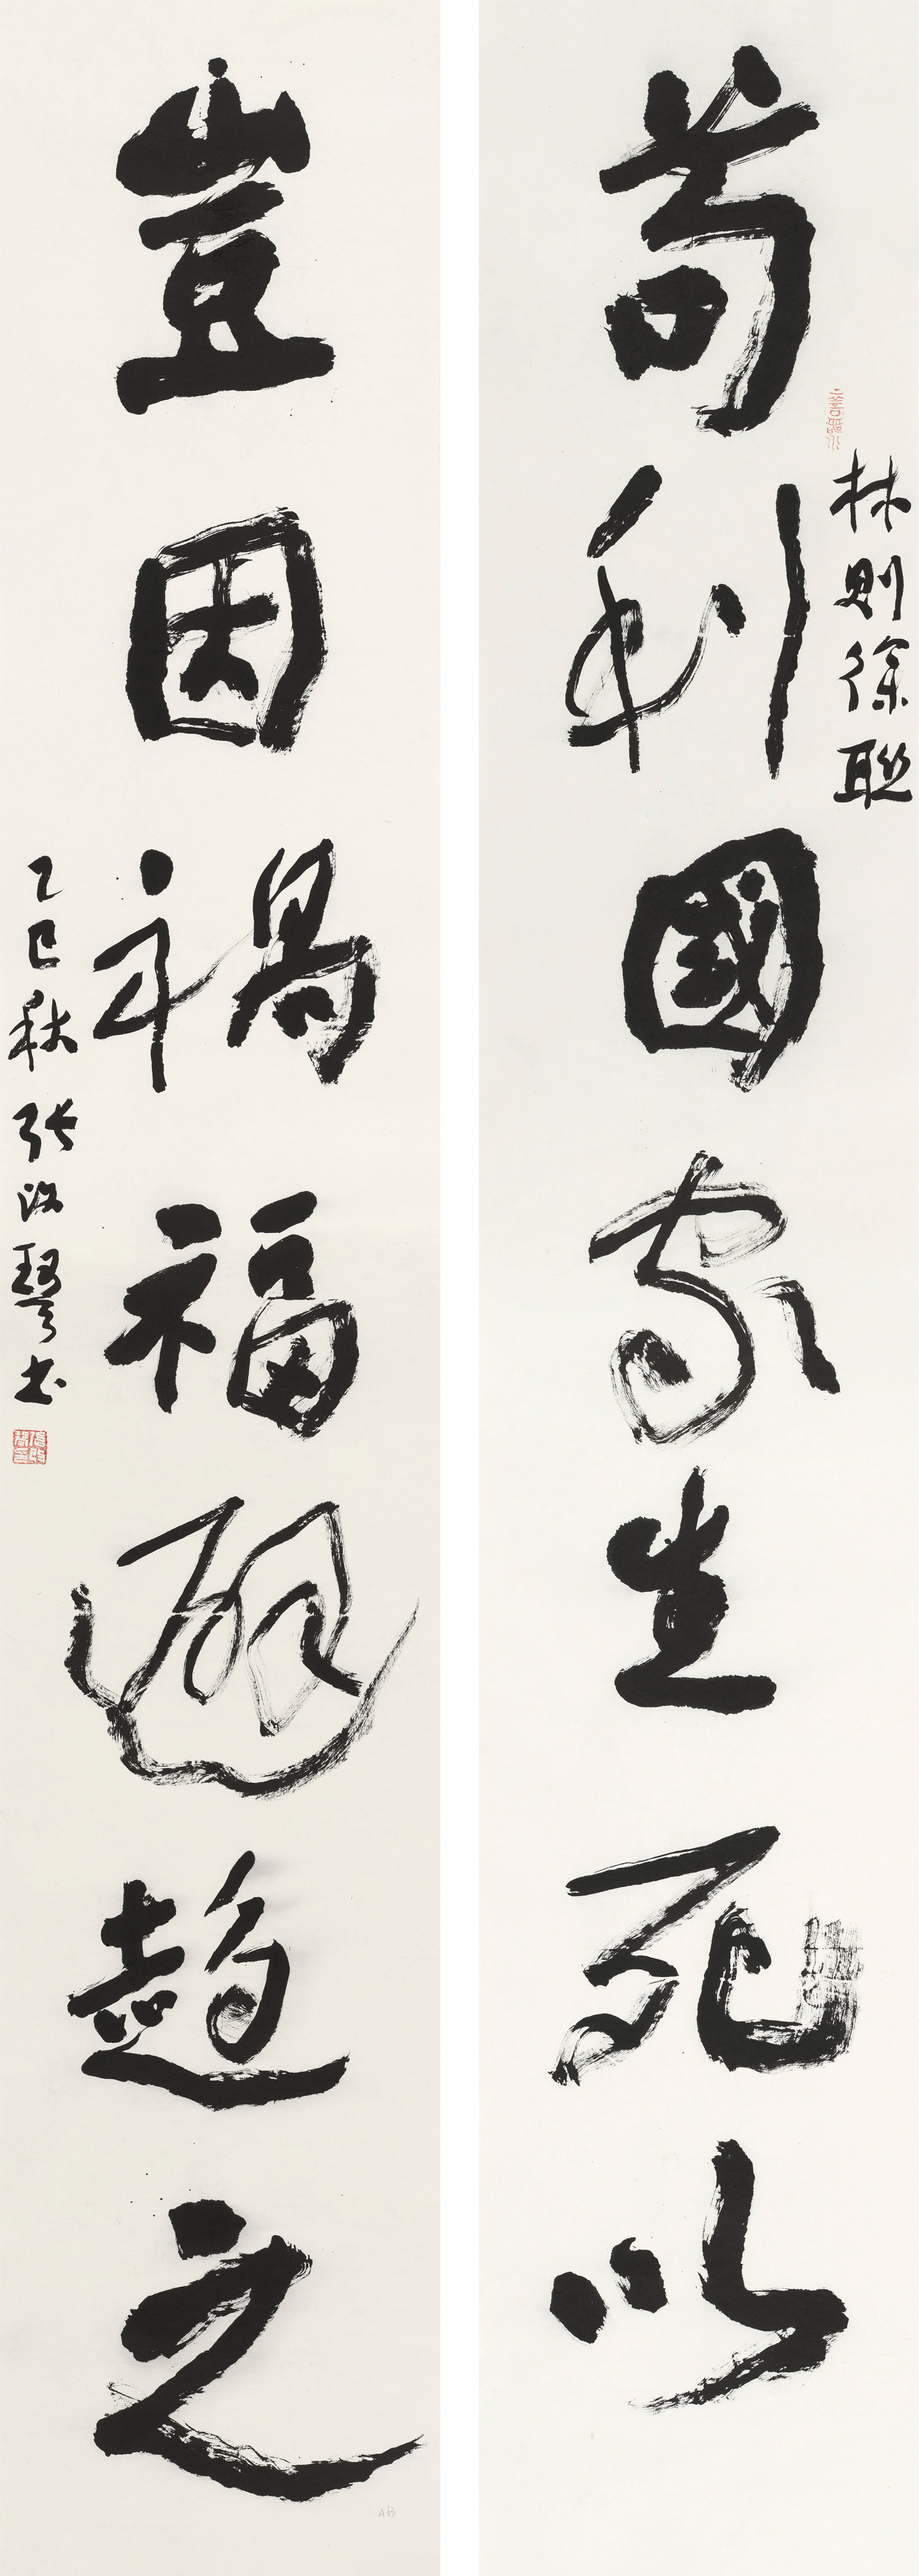 林則徐聯
苟利國家生死以
豈因禍福避趨之
乙巳秋張改琴書